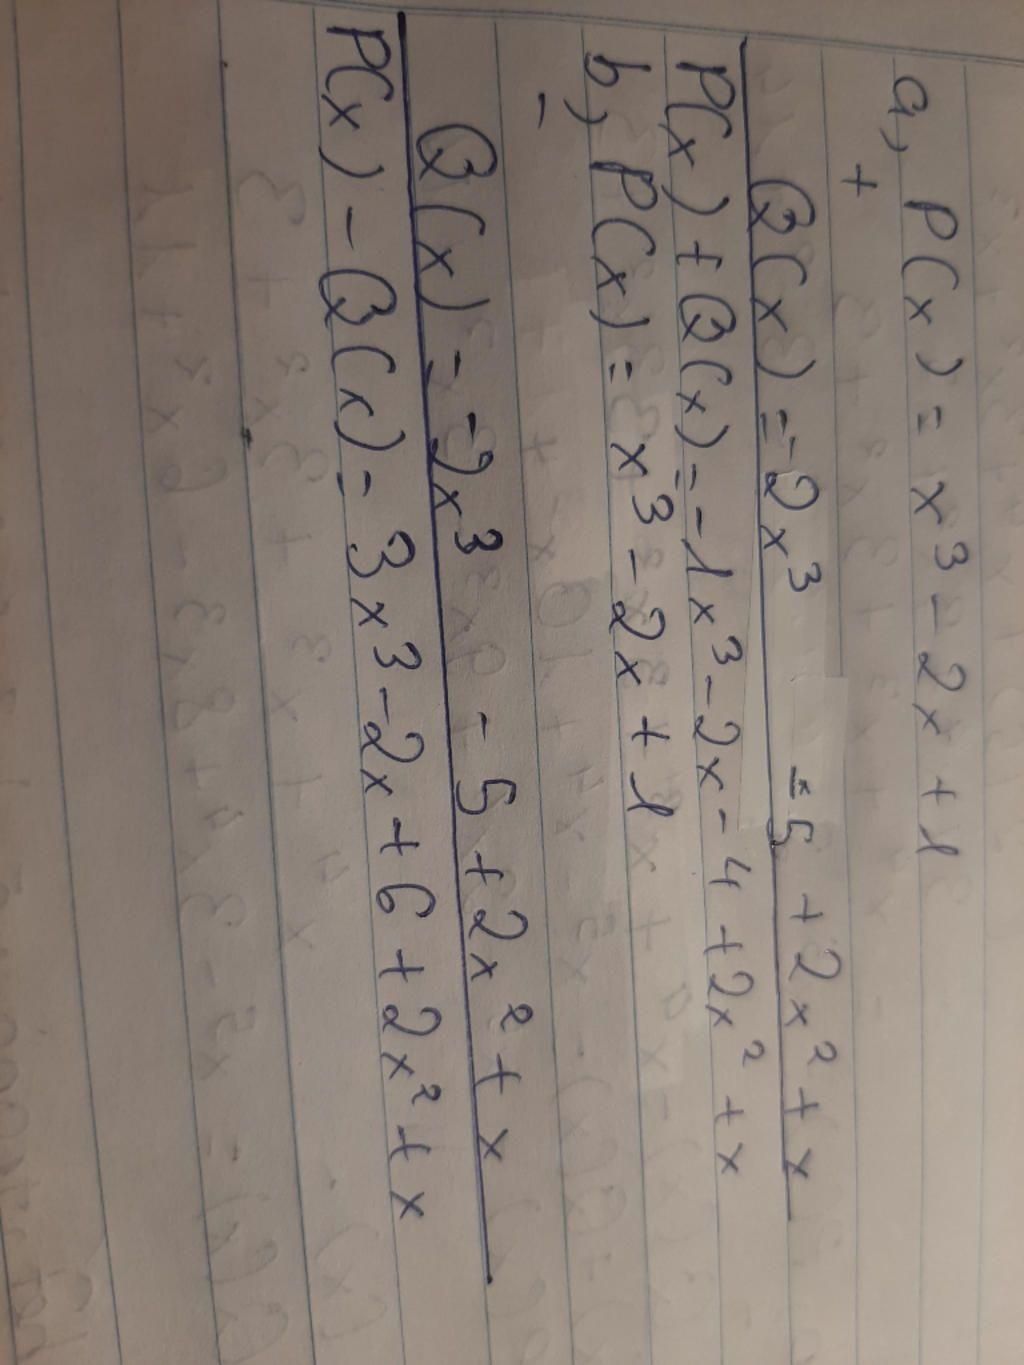 a, P(x) = x³ - 2x + 1
+
Q(x) = -2x³ - 5 + 2x² + x
P(x) + Q(x) = -1x³ - 2x - 4 + 2x² + x
b, P(x) = x³ - 2x + 1
-
Q(x) = -2x³ - 5 + 2x² + x
P(x) - Q(x) = 3x³ - 2x + 6 + 2x² + x